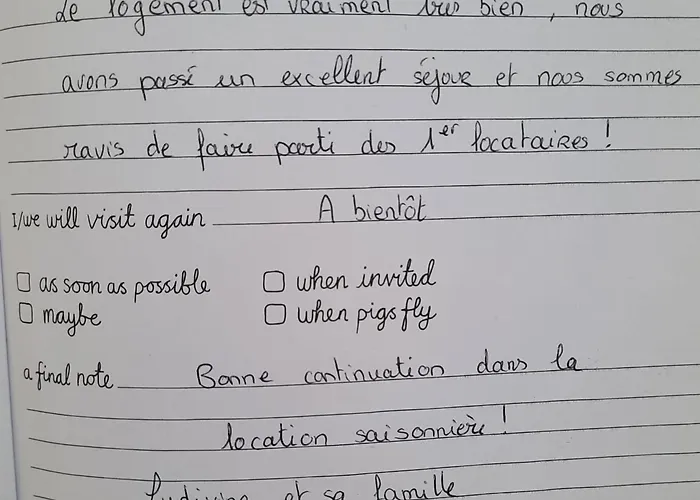 Le logement est vraiment très bien, nous
avons passé un excellent séjour et nous sommes
ravis de faire parti des 1er locataires !
I/we will visit again A bientôt
as soon as possible when invited
maybe when pigs fly
a final note Bonne continuation dans la
location saisonnière !
Ludivine et sa famille